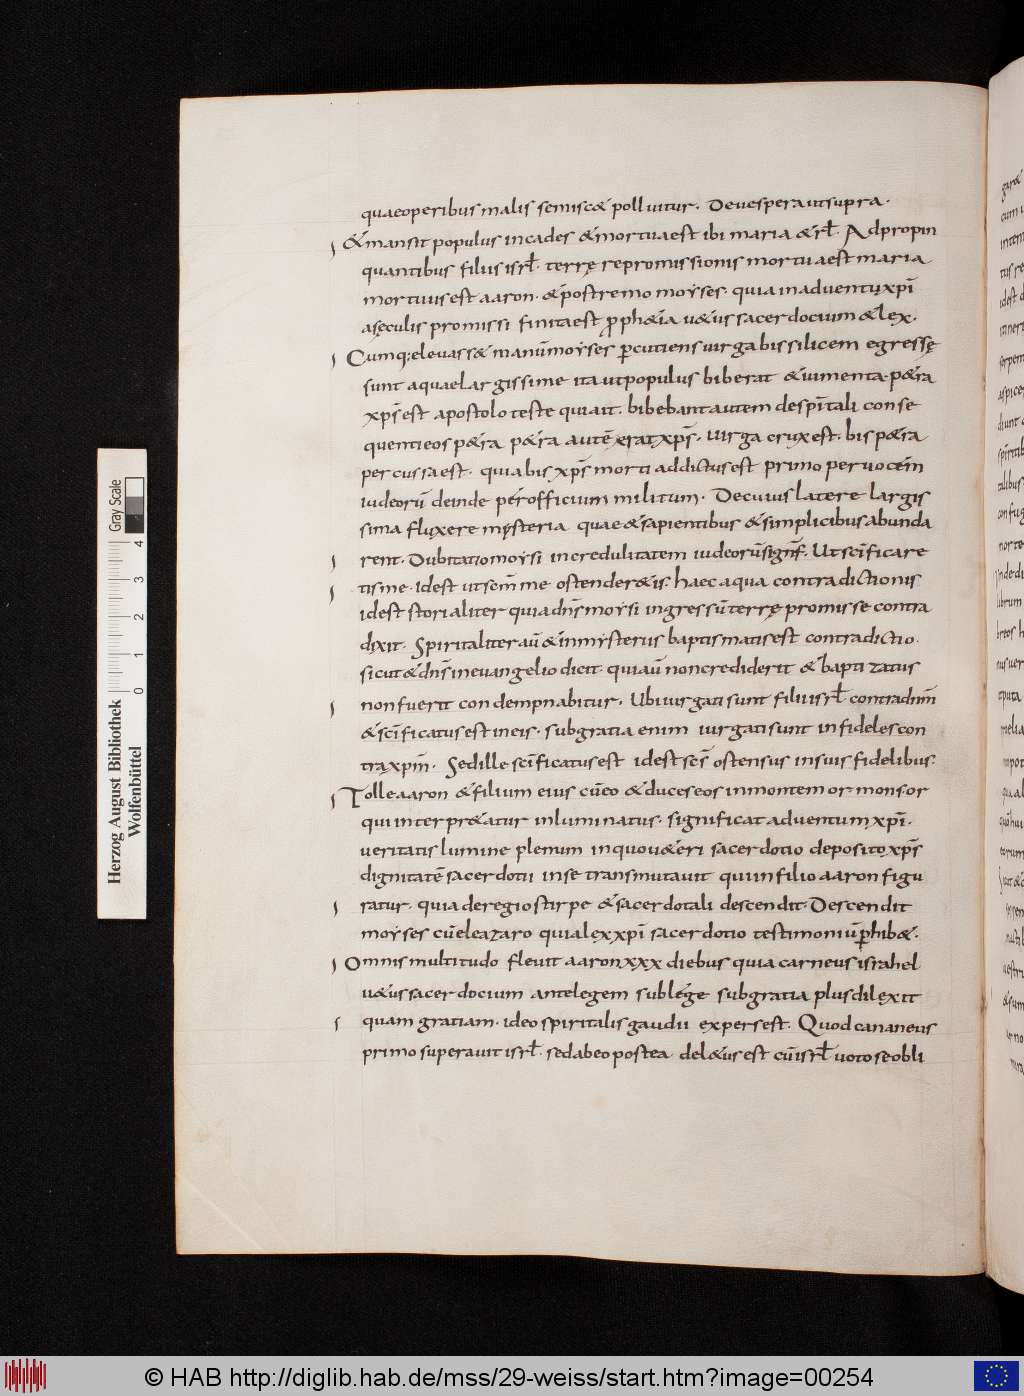 quae operibus malis se miscet polluitur. De uespera ut supra.
& mansit populus in cades & mortua est ibi maria & rl̄. Adpropin
quantibus filiis isrl̄. terrę repromissionis mortua est maria
mortuus est aaron. & postremo moyses. quia in aduentu xp̄i
a sęculis promissi finita est ꝓph&ia u&us sacerdocium & lex.
Cumq; eleuass& manū moyses ꝑcutiens uirga bis silicem egressę
sunt aquae largissime ita ut populus biberat & iumenta. p&ra
xp̄s est apostolo teste qui ait. bibebant autem de sp̄itali conse
quenti eos p&ra p&ra autē erat xp̄s. uirga crux est. bis p&ra
percussa est. quia bis xp̄s morti addictus est primo per uocem
iudeorū deinde per officium militum. De cuius latere largis
sima fluxere mysteria quae & sapientibus & simplicibus abunda
rent. Dubitatio moysi incredulitatem iudeorū signf̄. Ut sc̄ificare
tis me. id est ut sc̄m me ostender&is. haec aqua contradictionis
id est storialiter quia dn̄s moysi ingressū terrę promisse contra
dixit. Spiritaliter aū & in mysteriis baptismatis est contradictio.
sicut & dn̄s in euangelio dicit qui aū non crediderit & baptizatus
non fuerit condempnabitur. Ubi iurgati sunt filii isrl̄ contra dnm̄
& sc̄ificatus est in eis. sub gratia enim iurgati sunt infideles con
tra xp̄m. Sed ille sc̄ificatus est id est sc̄s ostensus in suis fidelibus.
Tolle aaron & filium eius cū eo & duces eos in montem or. mons or
qui interpr&atur inluminatus. significat aduentum xp̄i.
ueritatis lumine plenum in quo u&eri sacerdotio deposito xp̄s
dignitatē sacerdotii in se transmutauit qui in filio aaron figu
ratur. quia de regio stirpe & sacerdotali descendit. Descendit
moyses cū eleazaro quia lex xp̄i sacerdotio testimoniū ꝑhib&.
Omnis multitudo fleuit aaron xxx diebus quia carneus israhel
u&us sacerdocium ante legem sub lege sub gratia plus dilexit
quam gratiam. ideo spiritalis gaudii expers est. Quod cananeus
primo superauit isrl̄. sed ab eo postea del&us est cū isrl̄ uoto se obli
Herzog August Bibliothek
Wolfenbüttel
Gray Scale
0 1 2 3 4
© HAB http://diglib.hab.de/mss/29-weiss/start.htm?image=00254